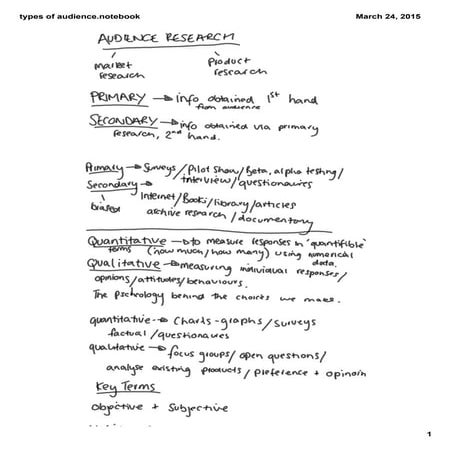 types of audience.notebook March 24, 2015
AUDIENCE RESEARCH
market research
Product research
PRIMARY → info obtained 1st hand
from audience
SECONDARY → info obtained via primary
research, 2nd hand.
Primary → Surveys/Pilot Show/Beta, alpha testing/
interview/questionaires
Secondary →
biased
Internet/Books/library/articles
archive research/documentary
Quantitative → to measure responses in 'quantifible'
terms (how much/how many) using numerical
data.
Qualitative → measuring individual responses/
opinions/attitudes/behaviours.
The psychology behind the choices we make.
quantitative → Charts-graphs/surveys
factual/questionaires
qualitative → focus groups/open questions/
analyse existing products/preference + opinion
Key Terms
Objective + Subjective
1